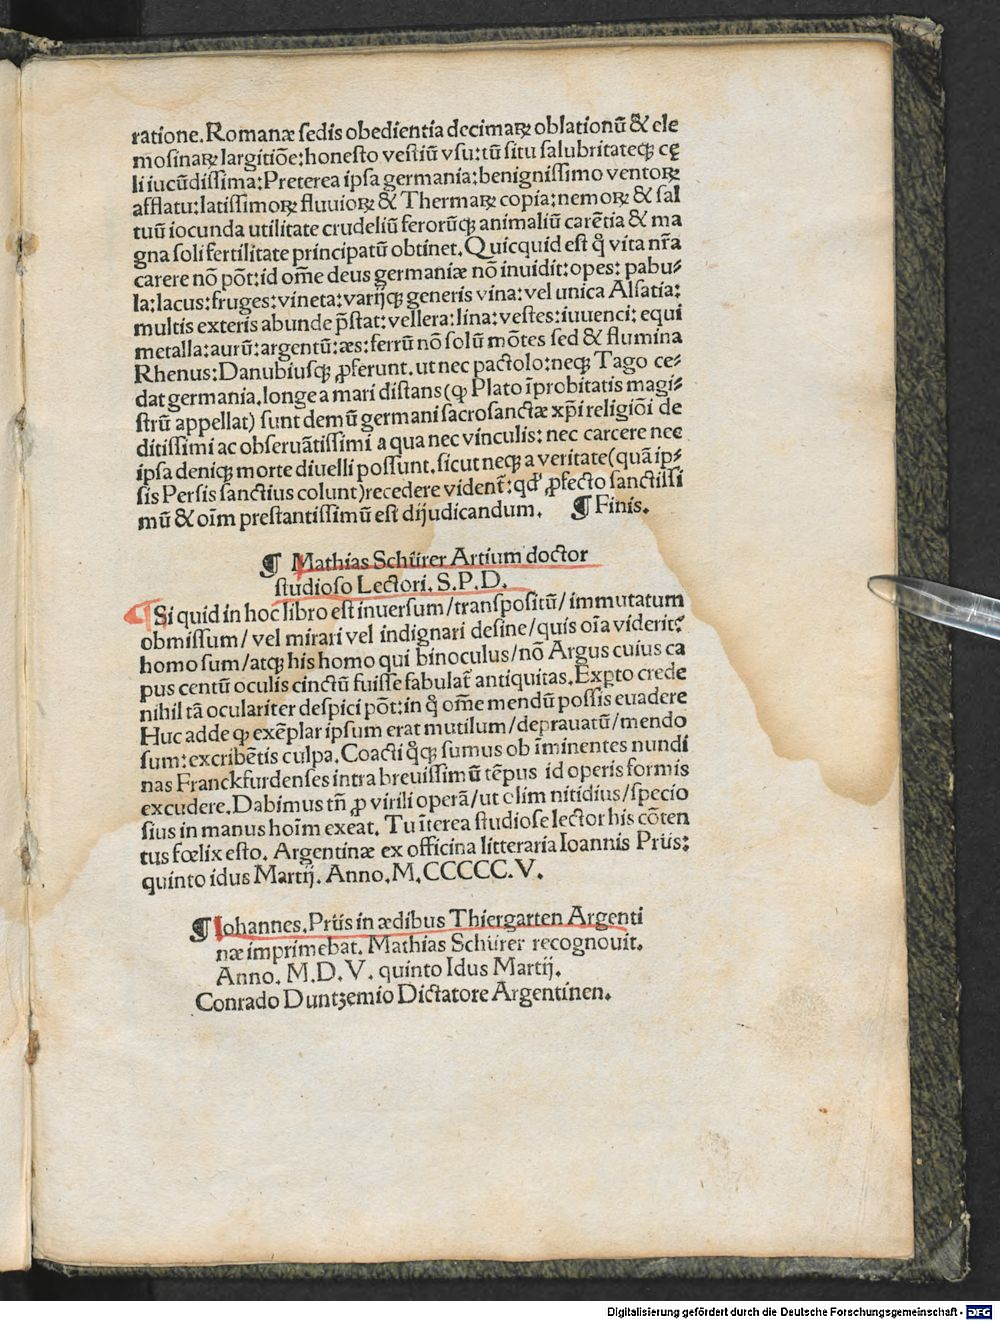 ratione.Romanæ sedis obedientia decimaꝝ oblationū & ele
mosinaꝝ largitiōe:honesto vestiū vsu:tū situ salubritateqꝫ cę
li iucūdissima:Preterea ipsa germania:benignissimo ventoꝝ
afflatu:latissimoꝝ fluuioꝝ & Thermaꝝ copia:nemoꝝ & sal
tuū iocunda utilitate crudeliū ferorūqꝫ animaliū carētia & ma
gna soli fertilitate principatū obtinet. Quicquid est q̊ vita nr̄a
carere nō pōt:id om̄e deus germaniæ nō inuidit:opes: pabu⸗
la:lacus:fruges:vineta:varijqꝫ generis vina:vel unica Alsatia:
multis exteris abunde p̄stat:vellera:lina:vestes:iuuenci: equi
metalla:aurū:argentū:æs:ferrū nō solū mōtes sed & flumina
Rhenus:Danubiusqꝫ ꝓferunt.ut nec pactolo:neqꝫ Tago ce⸗
dat germania.longe a mari distans(ꝙ Plato īprobitatis magi⸗
strū appellat) sunt demū germani sacrosanctæ xp̄i religiōi de
ditissimi ac obseruātissimi a qua nec vinculis: nec carcere nec
ipsa deniqꝫ morte diuelli possunt.sicut neqꝫ a veritate(quā ip⸗
sis Persis sanctius colunt)recedere vident̄:qd' ꝓfecto sanctissi
mū & oīm prestantissimū est dijudicandum. ¶ Finis.
¶ Mathias Schürer Artium doctor
studioso Lectori. S.P.D.
¶Si quid in hoc libro est inuersum/transpositū/immutatum
obmissum/ vel mirari vel indignari desine/quis oīa viderit:
homo sum/atqꝫ his homo qui binoculus/nō Argus cuius ca
pus centū oculis cinctū fuisse fabulat̄ antiquitas.Exꝑto crede
nihil tā oculariter despici pōt:in q̊ om̄e mendū possis euadere
Huc adde ꝙ exēplar ipsum erat mutilum/deprauatū/mendo
sum:excribētis culpa.Coacti q̊qꝫ sumus ob īminentes nundi
nas Franckfurdenses intra breuissimū tēpus id operis formis
excudere.Dabimus tn̄ ꝓ virili operā/ut olim nitidius/specio
sius in manus hoīm exeat. Tu īterea studiose lector his cōten
tus fœlix esto. Argentinæ ex officina litteraria Ioannis Prüs:
quinto idus Martij. Anno.M.CCCCC.V.
¶Iohannes.Prüs in ædibus Thiergarten Argenti
næ imprimebat. Mathias Schürer recognouit.
Anno. M.D.V. quinto Idus Martij.
Conrado Duntzemio Dictatore Argentinen.
Digitalisierung gefördert durch die Deutsche Forschungsgemeinschaft - DFG